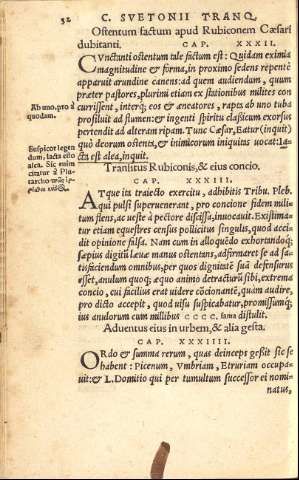 52 C. SVETONII TRANQ
Ostentum factum apud Rubiconem Cæsari
dubitanti. CAP. XXXII.
CVnctanti ostentum tale factum est: Quidam eximia
magnitudine & forma, in proximo sedens repentè
apparuit arundine canens: ad quem audiendum, quum
præter pastores, plurimi etiam ex stationibus milites con
currissent, interq; eos & æneatores, rapta ab uno tuba
prosiluit ad flumen: & ingenti spiritu classicum exorsus
pertendit ad alteram ripam. Tunc Cæsar, Eatur (inquit)
quò deorum ostenta, & inimicorum iniquitas uocat: Ia-
cta est alea, inquit.
Ab uno, pro à
quodam.
Suspicor legen
dum, iacta esto
alea. Sic enim
citatur à Plu-
tarcho
Transitus Rubiconis, & eius concio.
CAP. XXXIII.
ATque ita traiecto exercitu, adhibitis Tribu. Pleb.
qui pulsi superuenerant, pro concione fidem mili-
tum flens, ac ueste à pectore discissa, inuocauit. Existima-
tur etiam equestres census pollicitus singulis, quod acci-
dit opinione falsa. Nam cum in alloquēdo exhortandoq;
sæpius digitū leuæ manus ostentans, adfirmaret se ad sa-
tisfaciendum omnibus, per quos dignitatē suā defensurus
esset, anulum quoq; æquo animo detracturū sibi, extrema
concio, cui facilius erat uidere cōcionantē, quam audire,
pro dicto accepit, quod uisu suspicabatur, promissumq;
ius anulorum cum millibus CCCC. fama distulit.
Aduentus eius in urbem, & alia gesta.
CAP. XXXIIII.
ORdo & summa rerum, quas deinceps gessit sic se
habent: Picenum, Vmbriam, Etruriam occupa-
uit: & L. Domitio qui per tumultum successor ei nomi-
natus,